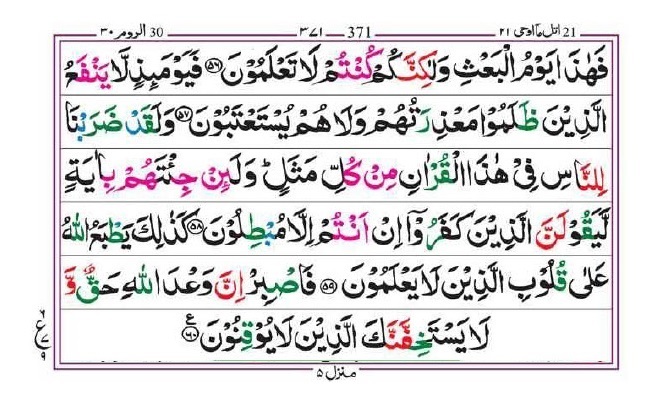 21 اتل مآاوحی ۲۱ 371 ۳۷۱ 30 الروم ۳۰
فَهٰذَا یَوْمُ الْبَعْثِ وَلٰكِنَّكُمْ كُنْتُمْ لَا تَعْلَمُوْنَ ﴿۵۶﴾ فَیَوْمَىِٕذٍ لَّا یَنْفَعُ
الَّذِیْنَ ظَلَمُوْا مَعْذِرَتُهُمْ وَلَا هُمْ یُسْتَعْتَبُوْنَ ﴿۵۷﴾ وَلَقَدْ ضَرَبْنَا
لِلنَّاسِ فِیْ هٰذَا الْقُرْاٰنِ مِنْ كُلِّ مَثَلٍ ؕ وَلَىِٕنْ جِئْتَهُمْ بِاٰیَةٍ
لَّیَقُوْلَنَّ الَّذِیْنَ كَفَرُوْۤا اِنْ اَنْتُمْ اِلَّا مُبْطِلُوْنَ ﴿۵۸﴾ كَذٰلِكَ یَطْبَعُ اللّٰهُ
عَلٰى قُلُوْبِ الَّذِیْنَ لَا یَعْلَمُوْنَ ﴿۵۹﴾ فَاصْبِرْ اِنَّ وَعْدَ اللّٰهِ حَقٌّ وَّ
لَا یَسْتَخِفَّنَّكَ الَّذِیْنَ لَا یُوْقِنُوْنَ ﴿۶۰﴾ ع
۶
ع ۷
۹
منزل ۵